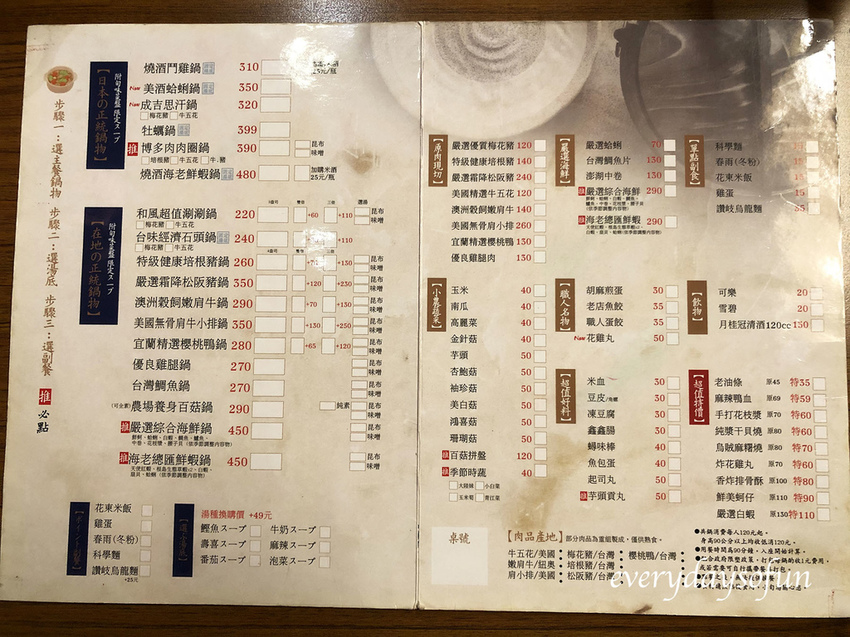 步驟一：選主餐鍋物 步驟二：選湯底 步驟三：選副餐
推 必點
附旬味菜盤 限定スープ
【日本の正統鍋物】
燒酒鬥雞鍋 310
25元/瓶
New 美酒蛤蜊鍋 350
New 成吉思汗鍋 320
梅花豬 牛五花
牡蠣鍋 399
推 博多肉肉圈鍋 390 昆布 味增
培根豬 牛五花 牛.豬
燒酒海老鮮蝦鍋 480 加購米酒 25元/瓶
附旬味菜盤 限定スープ
【在地の正統鍋物】
和風超值涮涮鍋 220 +60 +110 昆布 味增
梅花豬 牛五花
台味經濟石頭鍋 240 +110
梅花豬 牛五花
特級健康培根豬鍋 260 +70 +130 昆布 味增
嚴選霜降松阪豬鍋 350 +120 +230 昆布 味增
澳洲穀飼嫩肩牛鍋 290 +70 +130 昆布 味增
美國無骨肩牛小排鍋 350 +130 +250 昆布 味增
宜蘭精選櫻桃鴨鍋 280 +65 +120 昆布 味增
優良雞腿鍋 270 昆布 味增
台灣鯛魚鍋 270 昆布 味增
(可全素) 農場養身百菇鍋 290 純素 昆布 味增
推 嚴選綜合海鮮鍋 450 昆布 味增
推 海老總匯鮮蝦鍋 450 昆布 味增
花東米飯
雞蛋
春雨(冬粉)
科學麵
讚岐烏龍麵
+25元
湯種換購價 +49元
鰹魚スープ 牛奶スープ
壽喜スープ 麻辣スープ
番茄スープ 泡菜スープ
【原肉現切】
嚴選優質梅花豬 120
特級健康培根豬 140
嚴選霜降松阪豬 240
美國精選牛五花 120
澳洲穀飼嫩肩牛 140
美國無骨肩小排 260
宜蘭精選櫻桃鴨 130
優良雞腿肉 130
【嚴選海鮮】
嚴選蛤蜊 70
台灣鯛魚片 130
澎湖中卷 130
推 嚴選綜合海鮮 290
推 海老總匯鮮蝦 290
【單點副食】
科學麵 15
春雨(冬粉) 15
花東米飯 15
雞蛋 15
讚岐烏龍麵 35
【小農蔬菜】
玉米 40
南瓜 40
高麗菜 40
金針菇 40
芋頭 50
杏鮑菇 50
袖珍菇 50
美白菇 50
鴻喜菇 50
珊瑚菇 50
推 百菇拼盤 120
推 季節時蔬 40
大陸妹 小白菜
玉米筍 青江菜
【職人名物】
胡麻煎蛋 30
老店魚餃 35
職人蛋餃 35
New 花雞丸 50
【飲物】
可樂 20
雪碧 20
月桂冠清酒120cc 150
【超值好料】
米血 30
豆皮/角螺 30
凍豆腐 30
鑫鑫腸 30
蟳味棒 40
魚包蛋 40
起司丸 50
推 芋頭貢丸 50
【超值特價】
老油條 原45 特35
麻辣鴨血 原69 特59
手打花枝漿 原70 特60
純漿干貝燒 原80 特60
烏賊麻糬燒 原80 特70
炸花雞丸 原70 特60
香炸排骨酥 原100 特80
鮮美蚵仔 原110 特90
嚴選白蝦 原130 特110
桌號
【肉品產地】部分肉品為重組製成，僅供熟食。
牛五花/美國 ● 梅花豬/台灣 ● 櫻桃鴨/台灣
嫩肩牛/紐奧 ● 培根豬/台灣
肩小排/美國 ● 松阪豬/台灣
●共鍋消費每人120元起。
身高90公分以上均收低消120元。
●用餐時間為90分鐘，入座開始計算。
everydaysofun